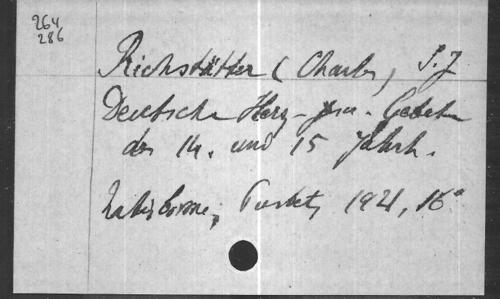 264
286
Richstätter (Charles, S.J
Deutsche Herz-Jesu-Gebete
des 14. und 15 Jahrh.
Ratisbonne, Pustet, 1921, 16°